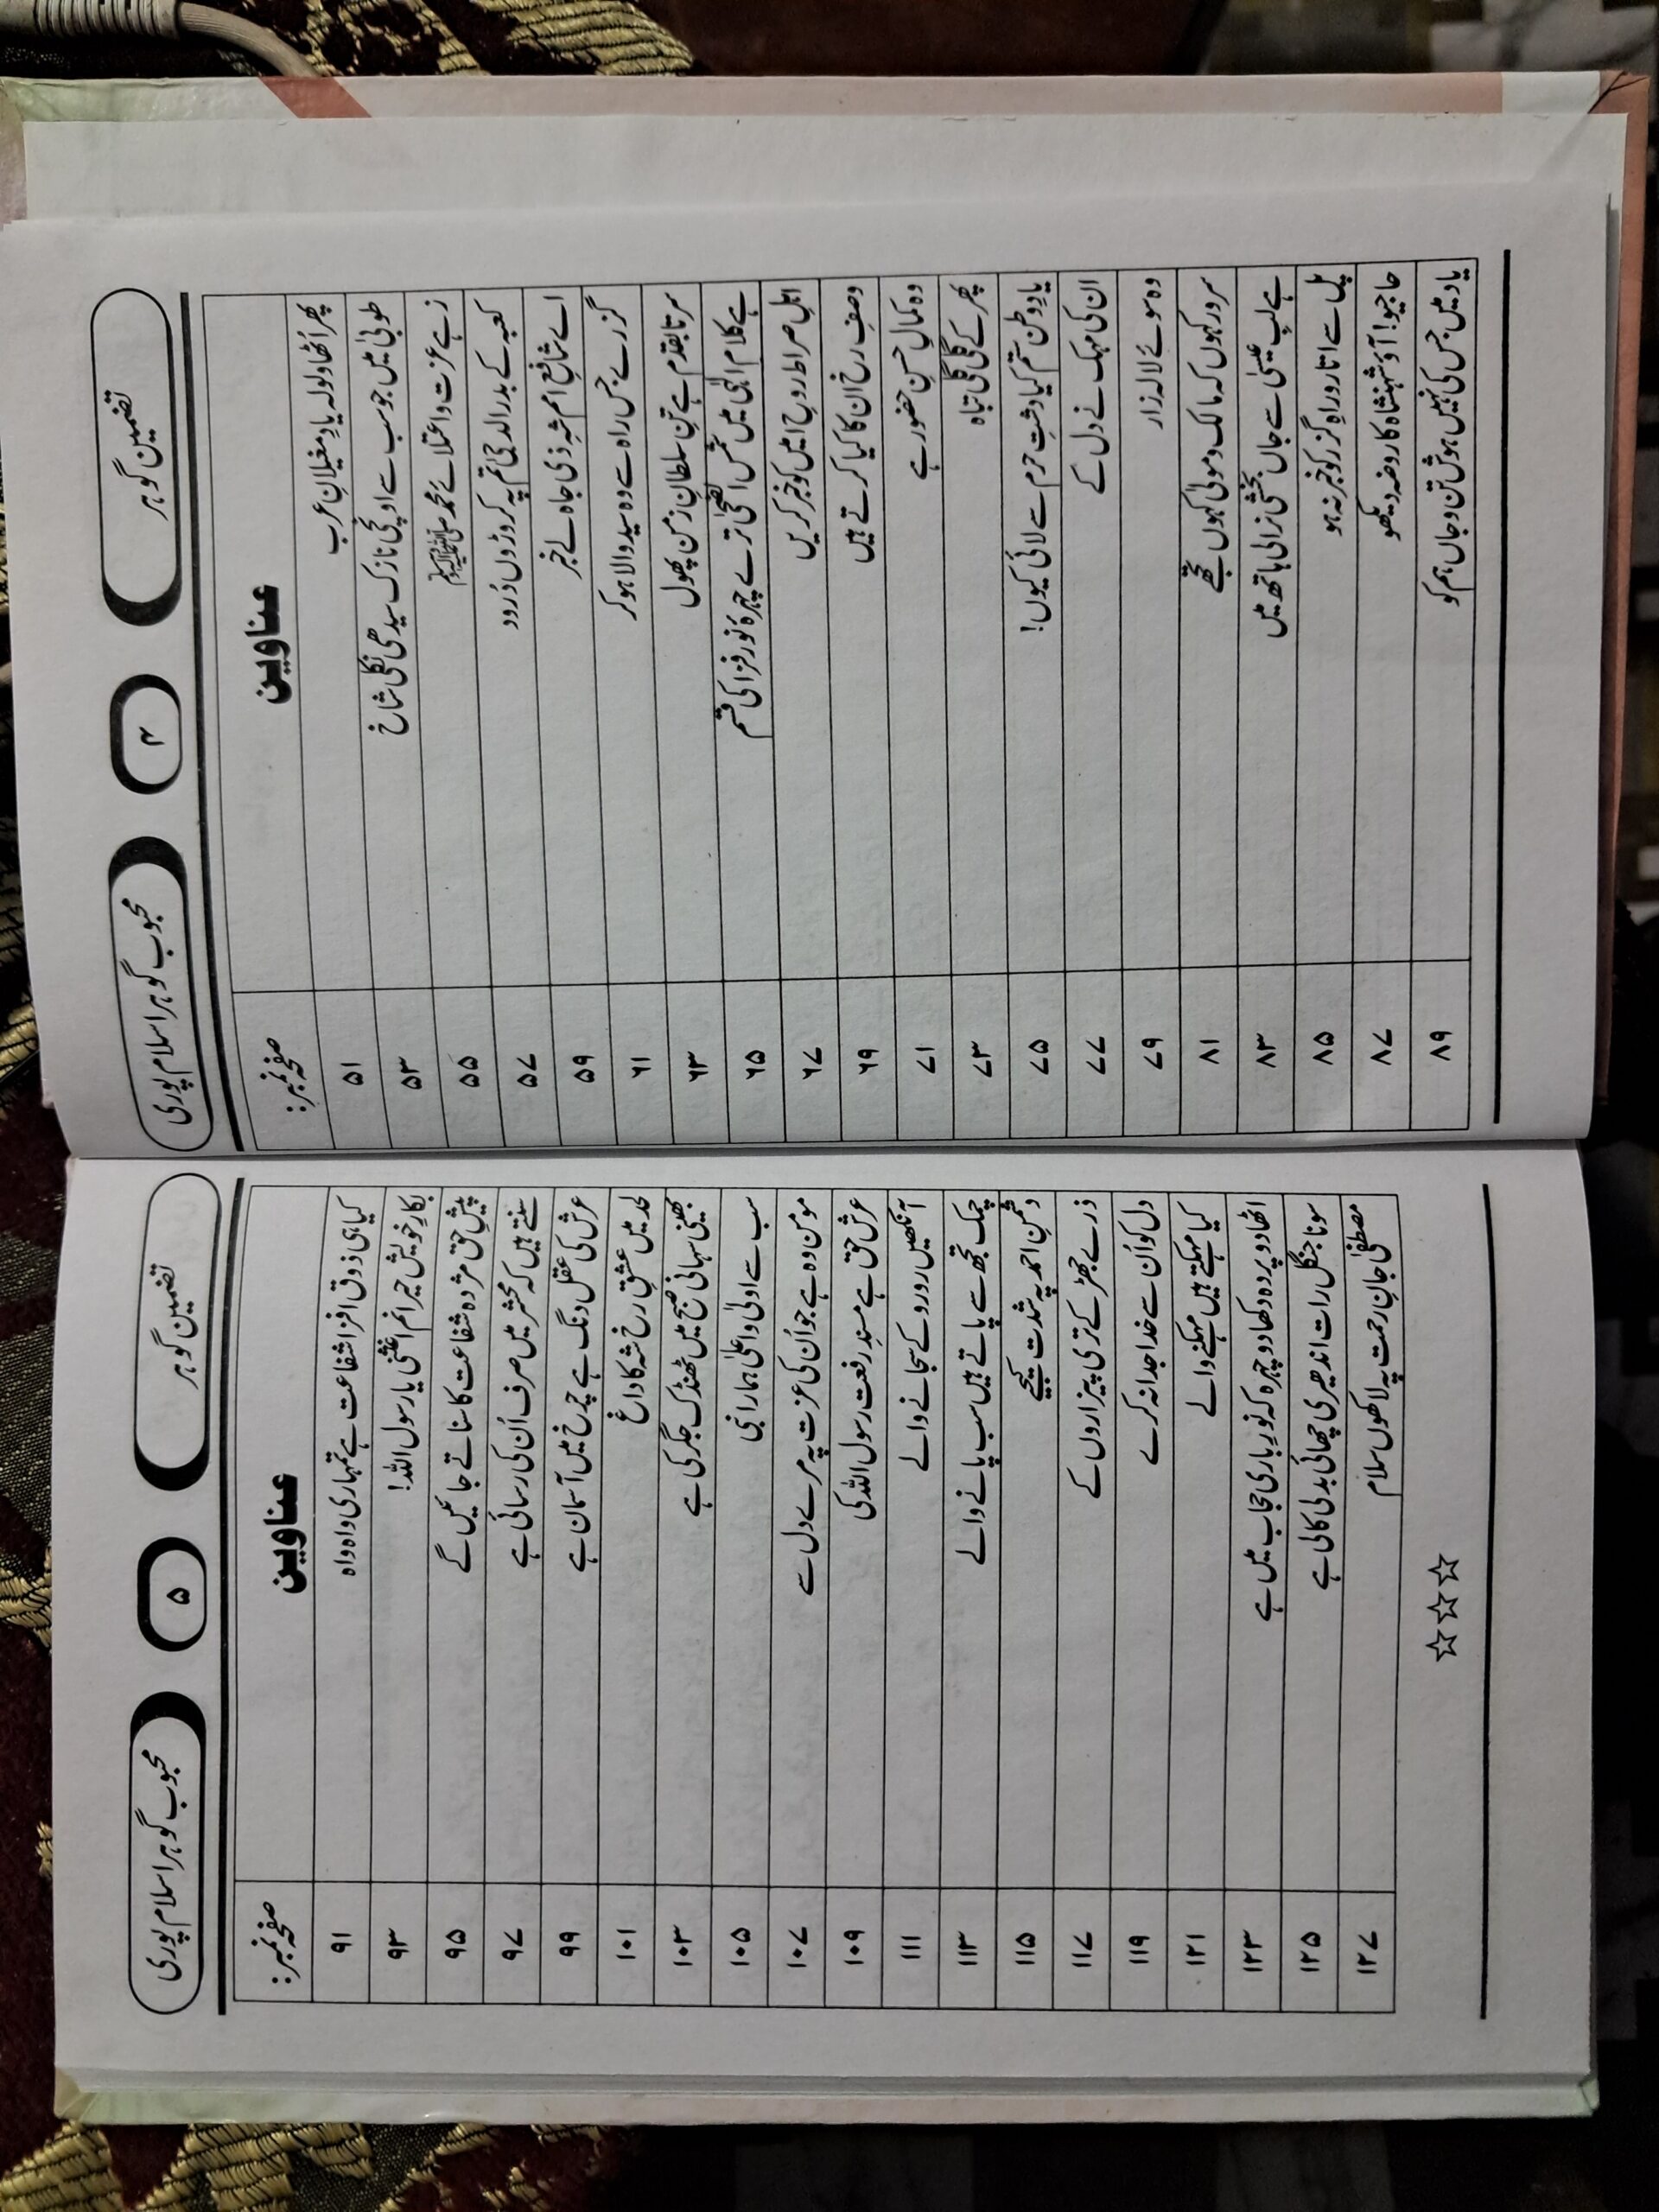 تضمین گوہر
۴
محبوب گوہر اسلام پوری
عناوین صفحہ نمبر:
پھر اُٹھا ولولہ یادِ مغیلانِ عرب ۵۱
طوبیٰ میں جو سب سے اونچی نازک سیدھی نکلی شاخ ۵۳
زہے عزت و اعتلائے محمد ﷺ ۵۵
کعبہ کے بدر الدجیٰ تم پہ کروڑوں دُرود ۵۷
اے شافعِ امم شہِ ذی جاہ لے خبر ۵۹
گزرے جس راہ سے وہ سید والا ہو کر ۶۱
سرتا بقدم ہے تنِ سلطانِ زمن پھول ۶۳
ہے کلام الٰہی میں شمس الضحیٰ ترے چہرۂ نور فزا کی قسم ۶۵
اہلِ صراط روحِ امیں کو خبر کریں ۶۷
وصفِ رخ ان کا کیا کرتے ہیں ۶۹
وہ کمالِ حسنِ حضور ہے ۷۱
پھر کے گلی گلی تباہ ۷۳
یادِ وطن ستم کیا دشتِ حرم سے لائی کیوں! ۷۵
ان کی مہک نے دل کے ۷۷
وہ سوئے لالہ زار ۷۹
سرور کہوں کہ مالک و مولیٰ کہوں تجھے ۸۱
ہے لبِ عیسیٰ سے جاں بخشی نرالی ہاتھ میں ۸۳
پل سے اتارو راہ گزر کو خبر نہ ہو ۸۵
حاجیو! آؤ شہنشاہ کا روضہ دیکھو ۸۷
یاد میں جس کی نہیں ہوش تن و جاں ہم کو ۸۹
تضمین گوہر
۵
محبوب گوہر اسلام پوری
عناوین صفحہ نمبر:
کیا ہی ذوق افزا شفاعت ہے تمہاری واہ واہ ۹۱
بکارِ خویش حیرانم اغثنی یا رسول اللہ! ۹۳
پیشِ حق مژدہ شفاعت کا سناتے جائیں گے ۹۵
سنتے ہیں کہ محشر میں صرف اُن کی رسائی ہے ۹۷
عرش کی عقل دنگ ہے چرخ میں آسمان ہے ۹۹
لحد میں عشقِ رخِ شہ کا داغ ۱۰۱
بھینی سہانی صبح میں ٹھنڈک جگر کی ہے ۱۰۳
سب سے اولیٰ و اعلیٰ ہمارا نبی ۱۰۵
مومن وہ ہے جو اُن کی عزت پہ مرے دل سے ۱۰۷
عرشِ حق ہے مسندِ رفعت رسول اللہ کی ۱۰۹
آنکھیں رو رو کے سجانے والے ۱۱۱
چمک تجھ سے پاتے ہیں سب پانے والے ۱۱۳
دشمنِ احمد پہ شدت کیجیے ۱۱۵
ذرے جھڑ کے تری پیزاروں کے ۱۱۷
دل کو اُن سے خدا جدا نہ کرے ۱۱۹
کیا مہکتے ہیں مہکنے والے ۱۲۱
اٹھا دو پردہ دکھا دو چہرہ کہ نورِ باری حجاب میں ہے ۱۲۳
سونا جنگل رات اندھیری چھائی بدلی کالی ہے ۱۲۵
مصطفیٰ جانِ رحمت پہ لاکھوں سلام ۱۲۷
☆☆☆